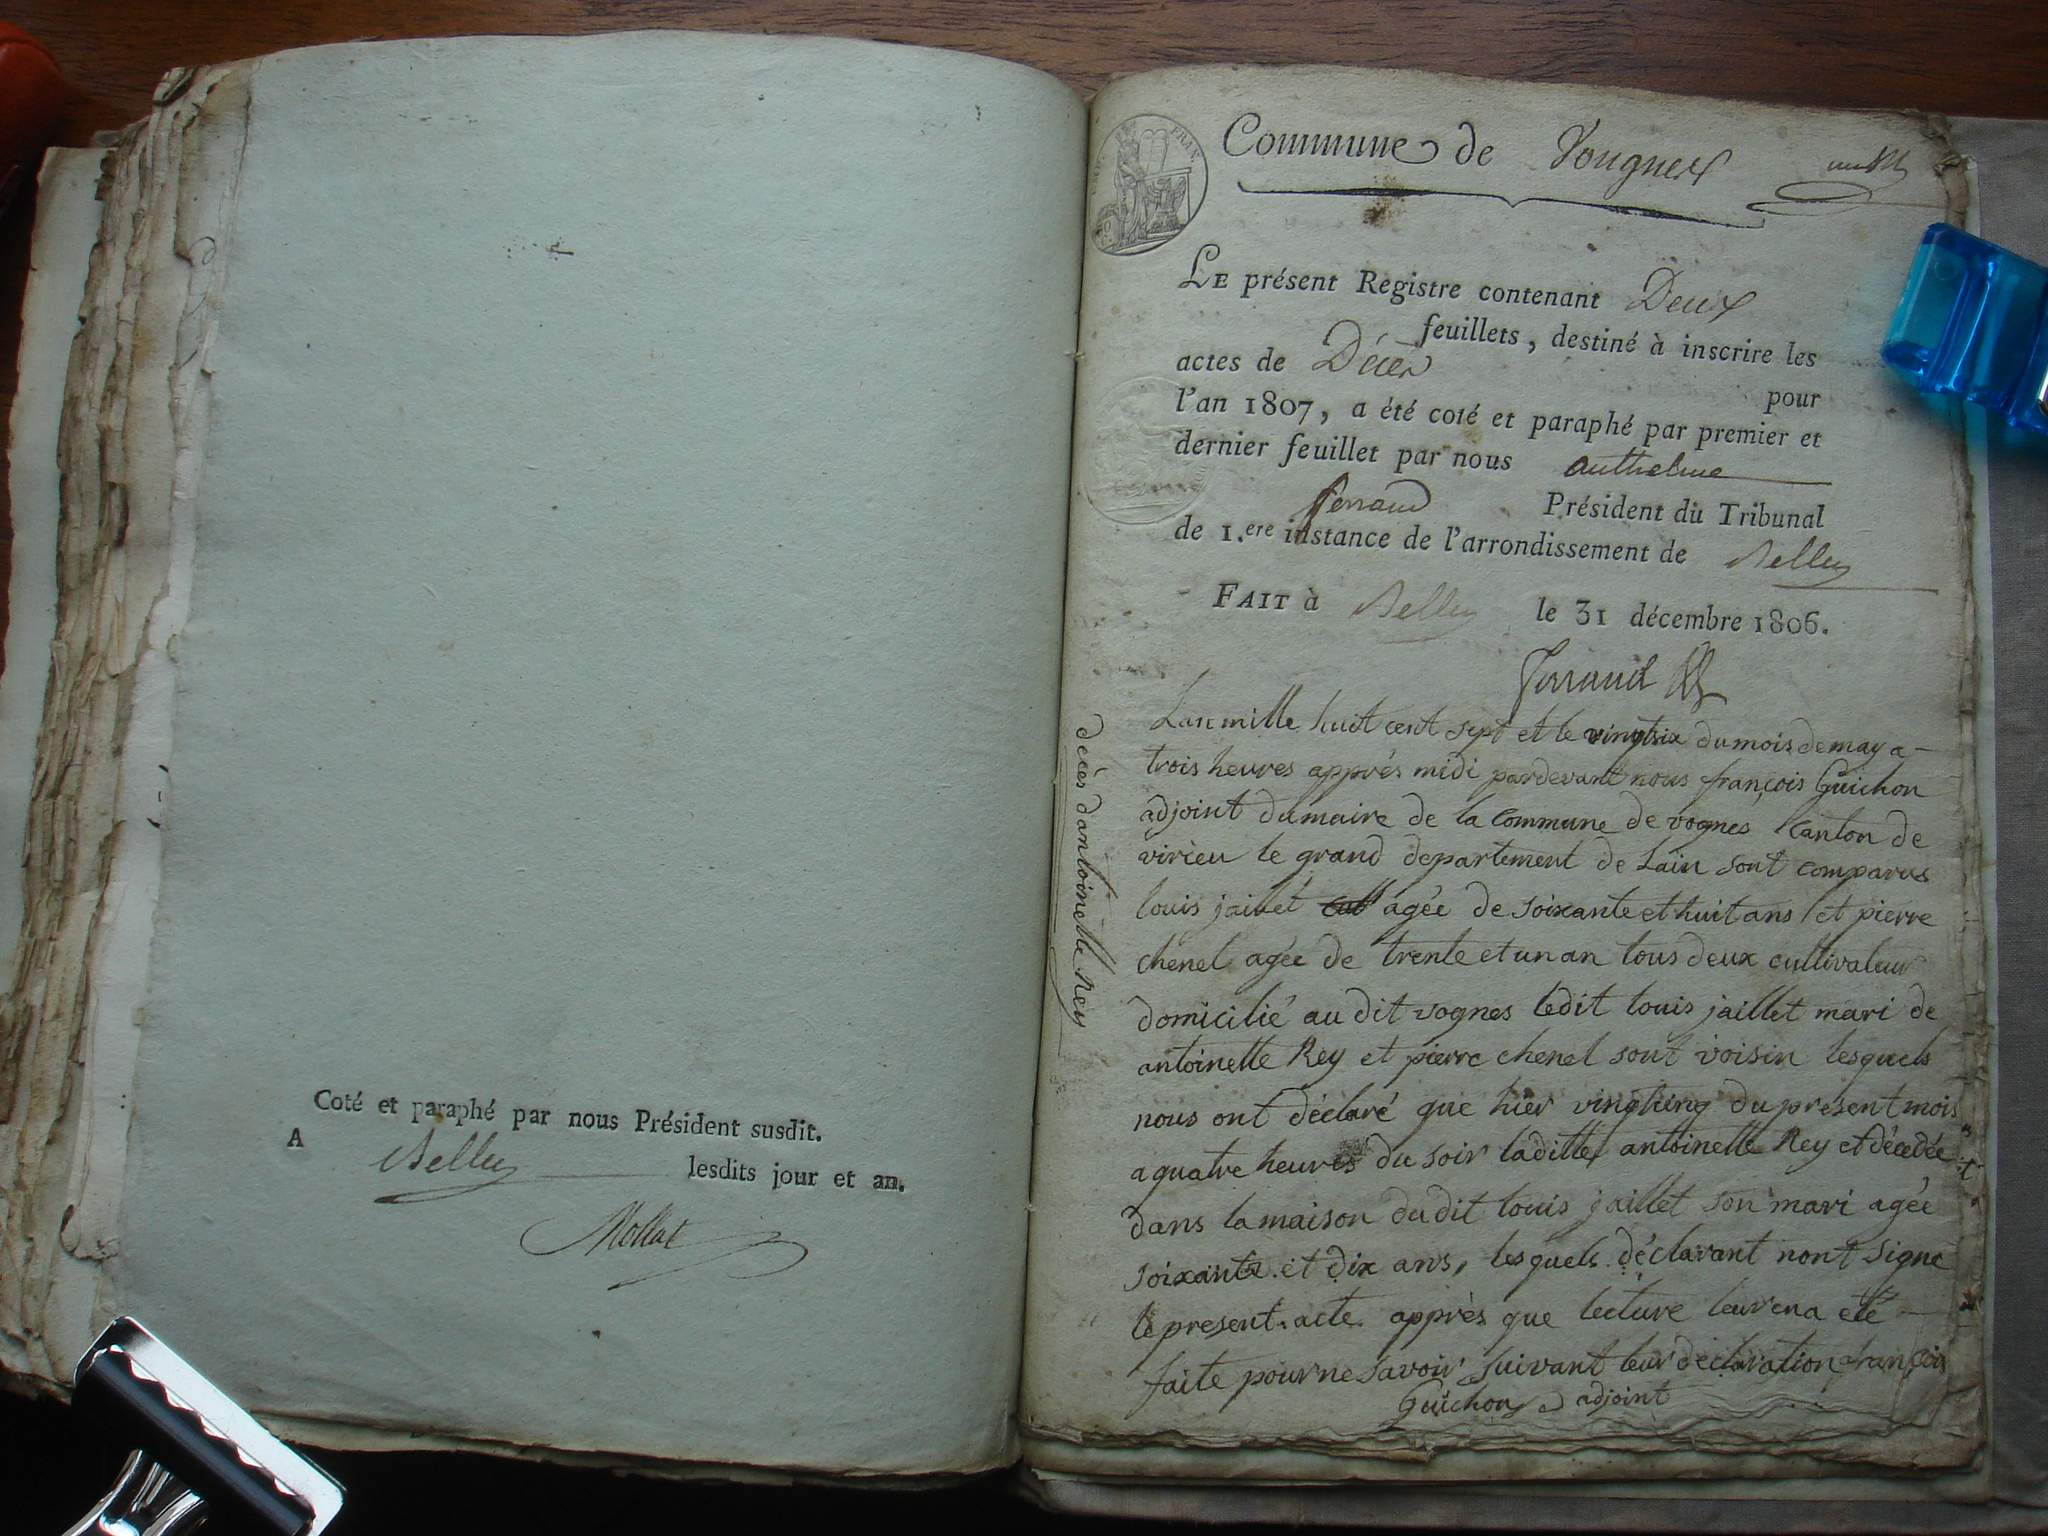 Coté et paraphé par nous Président susdit.
A Belley lesdits jour et an.
Mollat
Commune de Vougnes
LE présent Registre contenant Deux
feuillets, destiné à inscrire les
actes de Décès
pour
l'an 1807, a été coté et paraphé par premier et
dernier feuillet par nous anthelme
ferrand Président du Tribunal
de 1.ere instance de l'arrondissement de Belley
FAIT à Belley le 31 décembre 1806.
ferrand
décès d'antoinette Rey
Lan mille huit cent sept et le vingtsix du mois de may a
trois heures apprés midi pardevant nous françois Guichon
adjoint du maire de la commune de vognes Canton de
virieu le grand departement de Lain sont comparus
louis jaillet agée de soixante et huit ans et pierre
chenel agée de trente et un an tous deux cultivateur
domicilié au dit vognes ledit louis jaillet mari de
antoinette Rey et pierre chenel sont voisin lesquels
nous ont déclaré que hier vingtcinq du présent mois
a quatre heures du soir laditte antoinette Rey et décedée
dans la maison dudit louis jaillet son mari agée
soixante et dix ans, lesquels déclarant nont signé
le present acte apprès que lecture leur en a eté
faite pour ne savoir suivant leur déclaration françois
Guichon adjoint